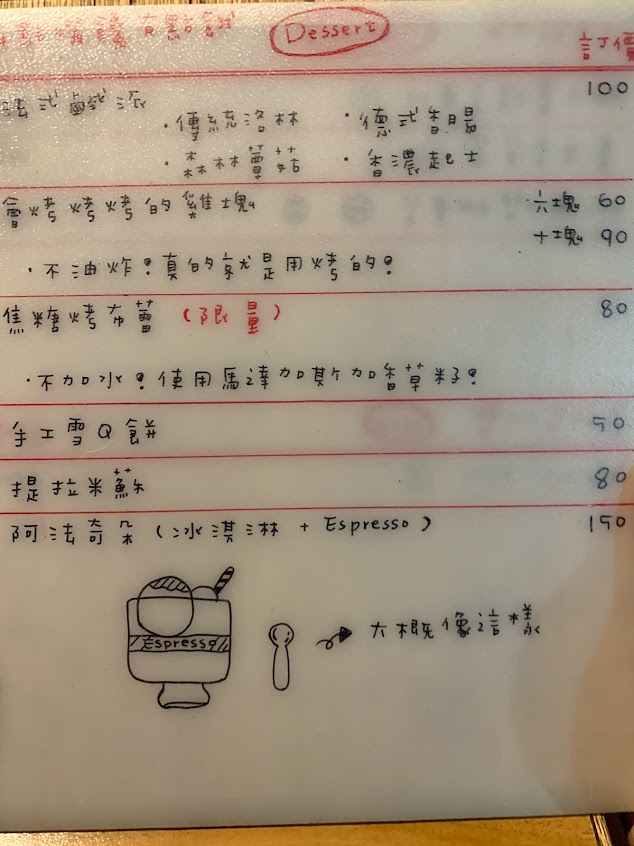 Dessert 訂價
法式鹹派 100
・傳統洛林 ・德式香腸
・森林蘑菇 ・香濃起士
會烤烤烤的雞塊 六塊 60
十塊 90
・不油炸!真的就是用烤的!
焦糖烤布蕾(限量) 80
・不加水!使用馬達加斯加香草籽!
手工雪Q餅 50
提拉米蘇 80
阿法奇朵(冰淇淋 + Espresso) 150
Espresso
大概像這樣